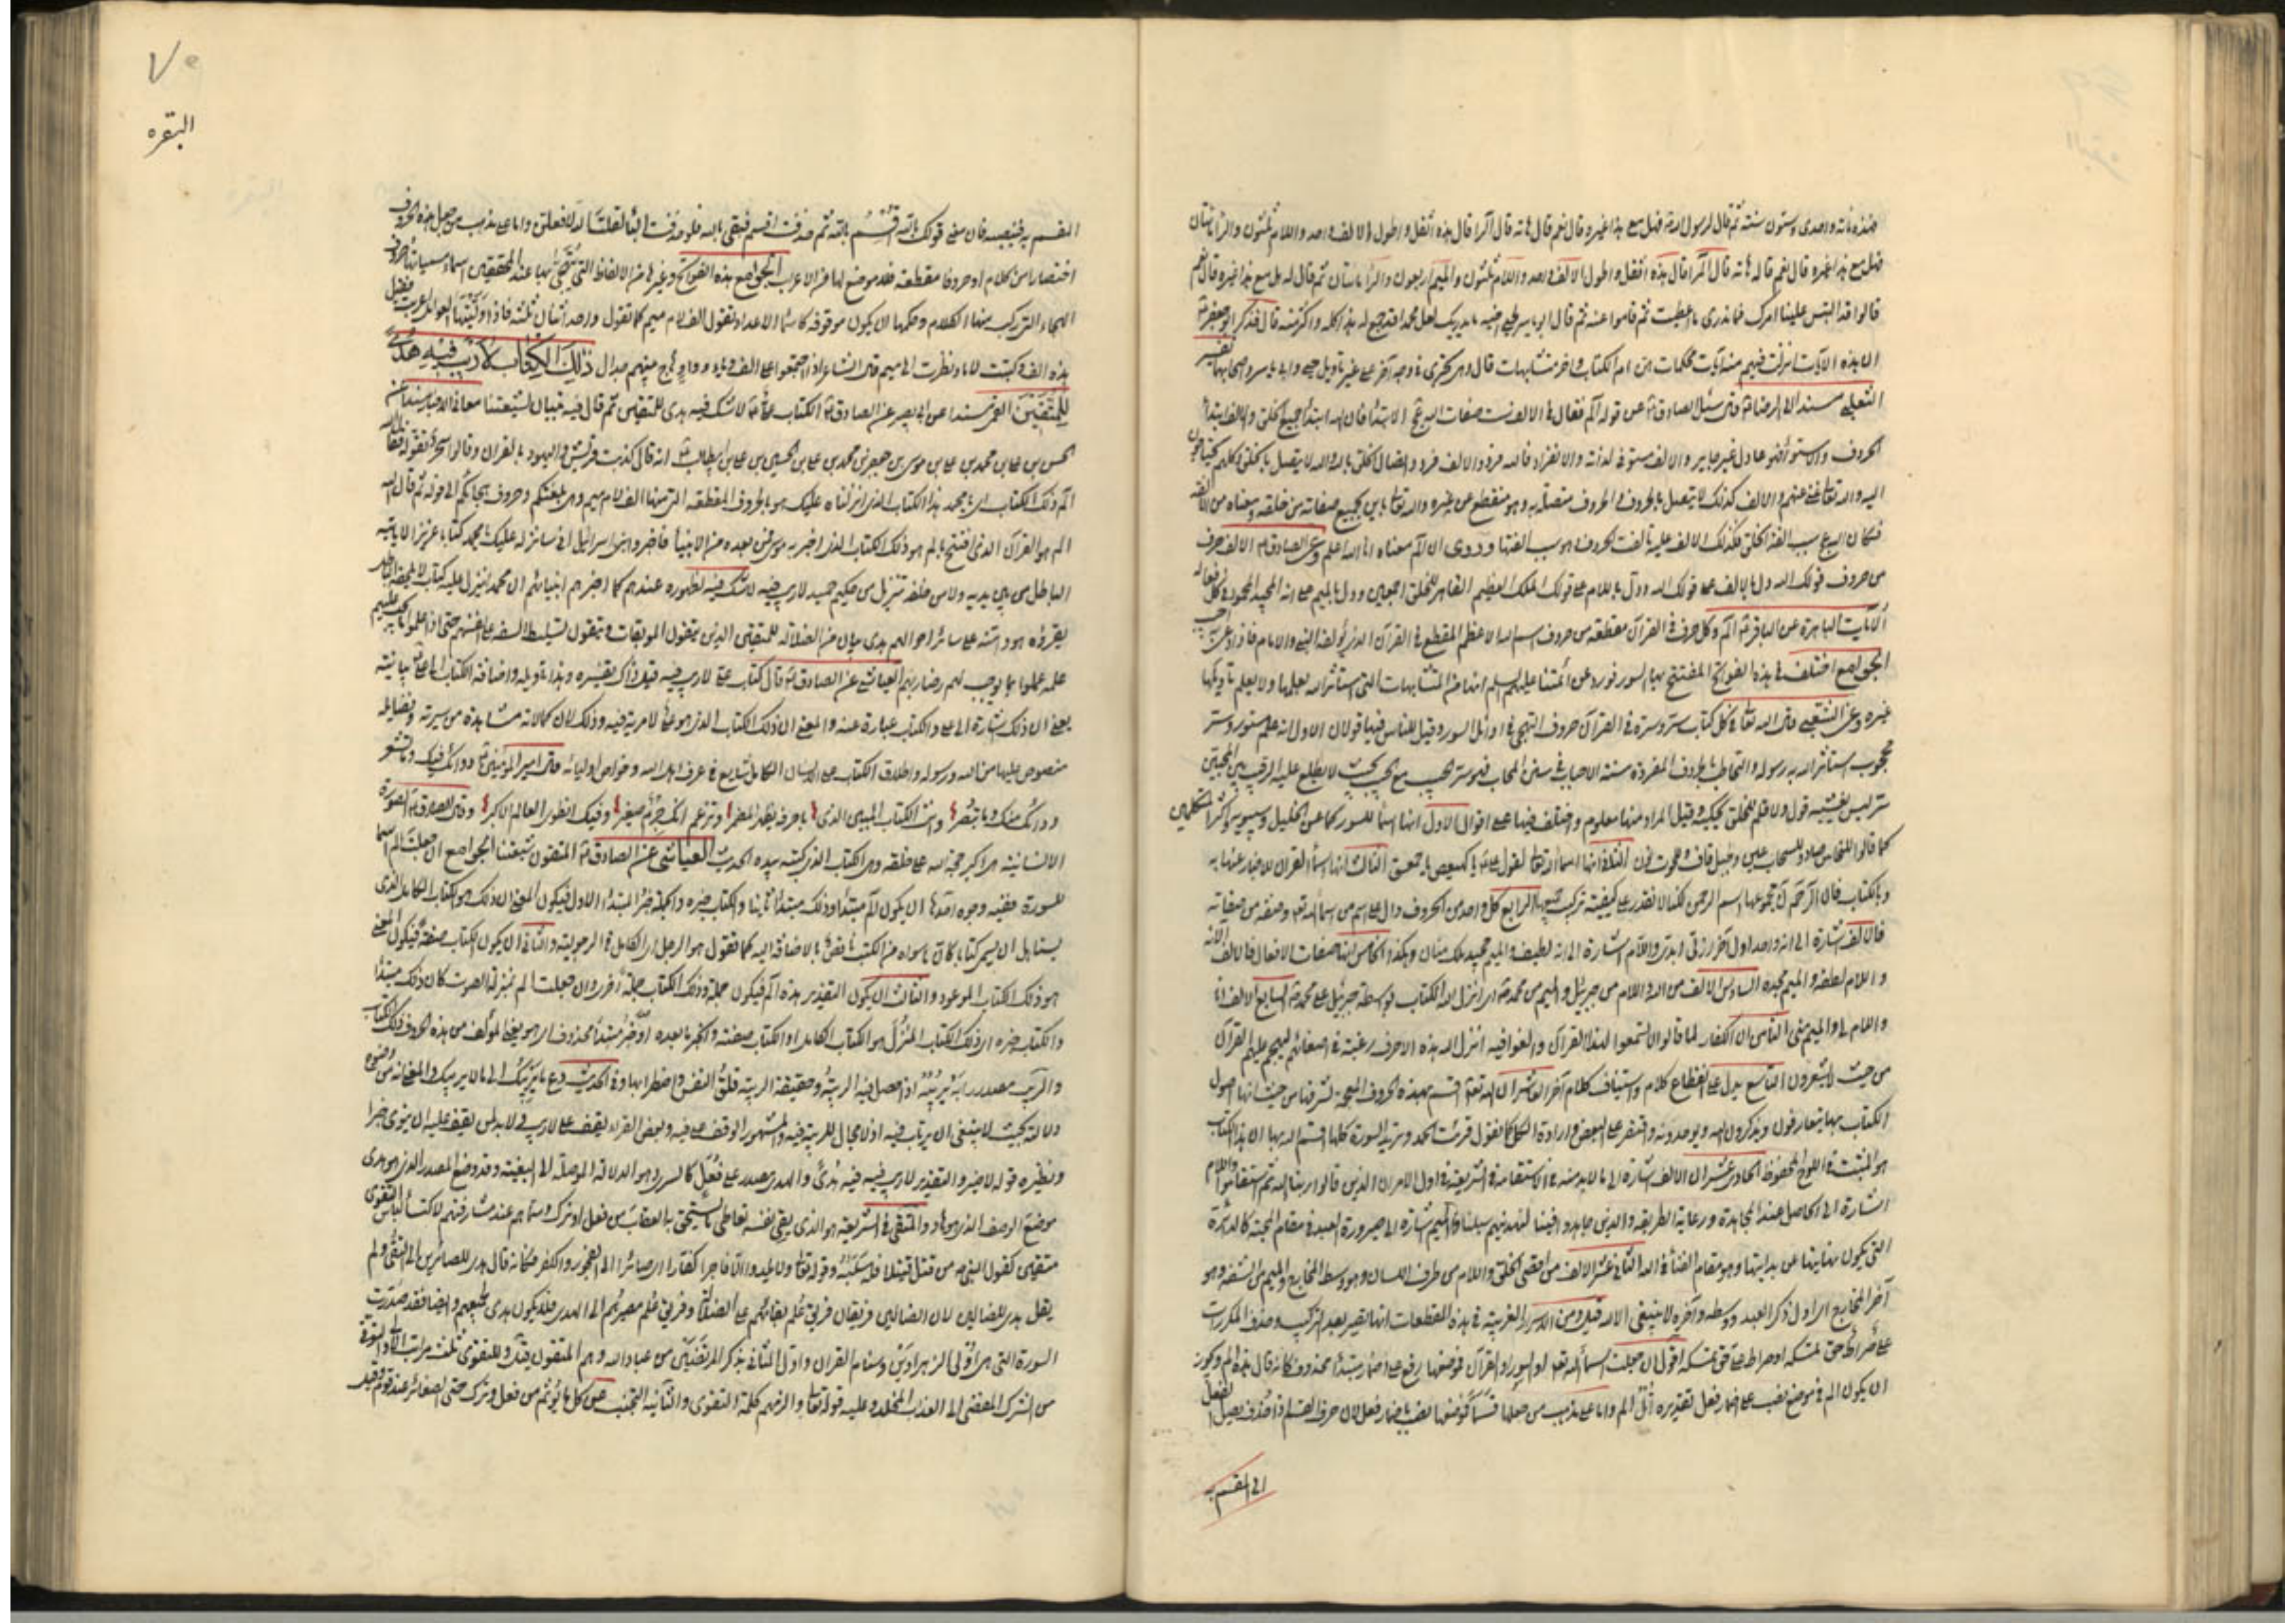 فهذه مائة واحدى وستون سنة ثم قال لرسول الله فهل مع هذا غيره قال نعم قال هاته قال الر قال هذه اثقل واطول الالف واحد واللام ثلثون والراء مائتان
فهل مع هذا غيره قال نعم قال هاته قال المر قال هذه اثقل واطول الالف واحد واللام ثلثون والميم اربعون والراء مائتان ثم قال له هل مع هذا غيره قال نعم
قالوا قد التبس علينا امرك فما ندرى ما اعطيت ثم قاموا عنه ثم قال ابو ياسر لحيى اخيه ما يدريك لعل محمدا قد جمع له هذا كله واكثر منه قال فذكر ابو جعفر ع
ان هذه الايات انزلت فيهم منه ايات محكمات هن ام الكتاب واخر متشابهات قال وهى تجرى فى وجه آخر على غير تاويل حيى وابى ياسر واصحابهما تفسير
الثعلبى مسندا الى الرضا ع قال سئل الصادق ع عن قوله الم فقال فى الالف ست صفات الله عج الابتداء فان الله ابتدأ جميع الخلق والالف ابتداء
الحروف والاستواء فهو عادل غير جاير والالف مستو فى ذاته والانفراد فالله فرد والالف فرد واتصال الخلق بالله والله لا يتصل بالخلق وكلهم محتاجون
اليه والله تعالى غنى عنهم والالف كذلك لا يتصل بالحروف والحروف متصلة به وهو منقطع عن غيره والله تعالى باين بجميع صفاته من خلقه ومعناه من الالفة
فكما ان الله عج سبب الفة الخلق فكذلك الالف عليه تالفت الحروف وهو سبب الفتها وروى ان الم معناه انا الله اعلم وعن الصادق ع الالف حرف
من حروف قولك الله دل بالالف على قولك الله ودل باللام على قولك الملك العظيم القاهر للخلق اجمعين ودل بالميم على انه المجيد المحمود فى كل فعاله
الايات الباهرة عن الباقر ع الم وكل حرف فى القرآن مقطعة من حروف اسم الله الاعظم المقطع فى القرآن الذى يؤلفه النبى والامام فاذا دعى به اجيب
الجوامع اختلف فى هذه الفواتح المفتتح بها السور فورد عن ائمتنا عليهم السلم انها من المتشابهات التى استاثر الله بعلمها ولا يعلم تاويلها
غيره وعن الشعبى قال لله تعالى فى كل كتاب سر وسره فى القرآن حروف التهجى فى اوائل السور وقيل للناس فيها قولان الاول انه علم مستور وسر
محجوب استاثر الله به رسوله والتخاطب بالحروف المفردة سنة الاحباب فى سنن المحاب فهو سر الحبيب مع الحبيب بحيث لا يطلع عليه الرقيب بين المحبين
سر ليس يفشيه قول ولا قلم للخلق يحكيه وقيل المراد منها معلوم واختلف فيها على اقوال الاول انها اسماء للسور كما عن الخليل وسيبويه واكثر المتكلمين
كما قالوا للنحاس صاد وللسحاب عين وجبل قاف وللحوت نون الثانى انها اسماء الله تعالى لقول على ع يا كهيعص يا حمعسق الثالث انها اسماء القران للاخبار عنها به
وبالكتاب فان الر حم ن مجموعها اسم الرحمن لكنا لا نقدر على كيفية تركيب جميعها الرابع كل واحد من الحروف دال على اسم من اسمائه تع وصفة من صفاته
فالالف اشارة الى انه واحد اول آخر ازلى ابدى واللام اشارة الى انه لطيف والميم مجيد ملك منان وهكذا الخامس انها صفات الافعال فالالف الاؤه
واللام لطفه والميم مجده السادس الالف من الله واللام من جبرئيل والميم من محمد ص اى انزل الله الكتاب بواسطة جبرئيل على محمد ص السابع الالف انا
واللام لى والميم منى الثامن ان الكفار لما قالوا لا تسمعوا لهذا القرآن والغوا فيه انزل الله هذه الاحرف رغبة فى اصغائهم ليهجم عليهم القرآن
من حيث لا يشعرون التاسع يدل على انقطاع كلام واستيناف كلام آخر العاشر ان الله تعالى اقسم بهذه الحروف المعجمة لشرفها من حيث انها اصول
الكتاب بها يتعارفون ويذكرون الله ويوحدونه واقتصر على البعض وارادة الكل كما تقول قرئت الحمد وتريد السورة كلها اقسم الله بها ان هذا الكتاب
هو المثبت فى اللوح المحفوظ الحادى عشر ان الالف اشارة الى ما لا بد منه فى الاستقامة فى الشريعة فى اول الامر ان الذين قالوا ربنا الله ثم استقاموا واللام
اشارة الى الحاصل عند المجاهدة ورعاية الطريقة والذين جاهدوا فينا لنهدينهم سبلنا والميم اشارة الى صيرورة العبد فى مقام المحبة كالدائرة
التى يكون نهايتها عن بدايتها وهو مقام الفناء فى الله الثانى عشر الالف من اقصى الحلق واللام من طرف اللسان وهو وسط المخارج والميم من الشفة وهو
آخر المخارج اى اول ذكر العبد ووسطه وآخره لا ينبغى الا لله قيل ومن الاسرار الغريبة فى هذه المقطعات انها تصير بعد التركيب وحذف المكررات
على صراط حق نمسكه او صراط على حق نمسكه اقول ان جعلت اسماء لله تع او السور او القرآن فموضعها رفع على اضمار مبتدأ محذوف كانه قال هذه الم ويجوز
ان يكون الم فى موضع نصب على اضمار فعل تقديره اتل الم واما على مذهب من جعلها قسما فموضعها نصب باضمار فعل لان حرف القسم اذا حذف يصل الفعل
الى المقسم به
البقره
المقسم به فينصبه فان معنى قولك بالله اقسم بالله ثم حذفت اقسم فبقى بالله فلو حذفت الباء لقلت الله لافعلن واما على مذهب من جعل هذه الحروف
اختصارا من كلام او حروفا مقطعة فلا موضع لها من الاعراب الجوامع هذه الفواتح وغيرها من الالفاظ التى يتهجى بها عند المحققين اسماء مسمياتها حروف
الهجاء التى ركب منها الكلام وحكمها ان يكون موقوفة كاسماء الاعداد تقول الف لام ميم كما تقول واحد اثنان ثلثة فاذا وليتها العوامل اعربت فقيل
هذه الف وكتبت لاما ونظرت الى ميم قال الشاعر اذا اجتمعوا على الف وياء وواو هاج بينهم جدال ذلك الكتاب لا ريب فيه هدى
للمتقين القمى مسندا عن ابى بصير عن الصادق ع الكتاب على ع لا شك فيه هدى للمتقين ثم قال فيه تبيان لشيعتنا معانى الاخبار مسندا عن
الحسن بن على بن محمد بن على بن موسى بن جعفر بن محمد بن على بن الحسين بن على بن ابيطالب ع انه قال كذبت قريش واليهود بالقران وقالوا سحر تقوله فقال الله
الم ذلك الكتاب اى يا محمد هذا الكتاب الذى انزلناه عليك هو بالحروف المقطعة التى منها الف لام ميم وهى بلغتكم وحروف هجائكم الى قوله ثم قال الله
الم هو القرآن الذى افتتح بالم هو ذلك الكتاب الذى اخبر به موسى فمن بعده من الانبياء فاخبروا بنى اسرائيل انى سانزله عليك يا محمد كتابا عزيزا لا ياتيه
الباطل من بين يديه ولا من خلفه تنزيل من حكيم حميد لا ريب فيه لا شك فيه لظهوره عندهم كما اخبرهم انبيائهم ان محمدا ينزل عليه كتاب لا يمحوه الباطل
يقرؤه هو وامته على سائر احوالهم هدى بيان من الضلالة للمتقين الذين يتقون الموبقات ويتقون تسليط السفه على انفسهم حتى اذا علموا ما يجب عليهم
علمه عملوا بما يوجب لهم رضا ربهم العياشى عن الصادق ع قال كتاب على لا ريب فيه قيل ذاك تفسيره وهذا تاويله واضافة الكتاب الى على بيانية
يعنى ان ذلك اشارة الى على والكتاب عبارة عنه والمعنى ان ذلك الكتاب الذى هو على لا مرية فيه وذلك لان كمالاته مشاهدة من سيرته وفضايله
منصوص عليها من الله ورسوله واطلاق الكتاب على الانسان الكامل شايع فى عرف اهل الله وخواص اوليائه قال امير المؤمنين ع دوائك فيك وما تشعر
ودائك منك وما تبصر وانت الكتاب المبين الذى باحرفه يظهر المضمر وتزعم انك جرم صغير وفيك انطوى العالم الاكبر وقال الصادق ع الصورة
الانسانية هى اكبر حجة الله على خلقه وهى الكتاب الذى كتبه بيده الحديث العياشى عن الصادق ع المتقون شيعتنا الجوامع ان جعلت الم اسما
للسورة ففيه وجوه احدها ان يكون الم مبتدأ وذلك مبتدأ ثانيا والكتاب خبره والجملة خبر المبتدأ الاول فيكون المعنى ان ذلك هو الكتاب الكامل الذى
يستاهل ان يسمى كتابا كان ما سواه من الكتب ناقص بالاضافة اليه كما تقول هو الرجل اى الكامل فى الرجولية والثانى ان يكون الكتاب صفة فيكون المعنى
هو ذلك الكتاب الموعود والثالث ان يكون التقدير هذه الم فيكون جملة وذلك الكتاب جملة اخرى وان جعلت الم بمنزلة الصوت كان ذلك مبتدأ
والكتاب خبره اى ذلك الكتاب المنزل هو الكتاب الكامل او الكتاب صفته والخبر ما بعده او خبر مبتدأ محذوف اى هو يعنى المؤلف من هذه الحروف ذلك الكتاب
والريب مصدر رابه يريبه اذا حصل فيه الريبة وحقيقة الريبة قلق النفس واضطرابها وفى الحديث دع ما يريبك الى ما لا يريبك والمعنى انه من وضوح
دلالته بحيث لا ينبغى ان يرتاب فيه اذ لا مجال للريبة فيه والمشهور الوقف على فيه وبعض القراء يقف على لا ريب ولا بد لمن يقف عليه ان ينوى خبرا
ونظيره قوله لا ضير والتقدير لا ريب فيه فيه هدى والهدى مصدر على فعل كالسرى وهو الدلالة الموصلة الى البغية وقد وضع المصدر الذى هو هدى
موضع الوصف الذى هو هاد والمتقى فى الشريعة هو الذى يقى نفسه تعاطى ما يستحق به العقاب من فعل او ترك وسماهم عند مشارفتهم لاكتساء لباس التقوى
متقين كقول النبى ص من قتل قتيلا فله سلبه وقوله تعالى ولا يلدوا الا فاجرا كفارا اى صائرا الى الفجور والكفر فكانه قال هدى للصائرين الى التقى ولم
يقل هدى للضالين لان الضالين فريقان فريق علم بقائهم على الضلالة وفريق علم مصيرهم الى الهدى فلا يكون هدى لجميعهم وايضا فقد صدرت
السورة التى هى اولى الزهراوين وسنام القران واول المثانى بذكر المرتضين من عباد الله وهم المتقون قيل وللتقوى ثلث مراتب الاولى التوقى
من الشرك المفضى الى العذاب المخلد وعليه قوله تعالى والزمهم كلمة التقوى والثانية التجنب عن كل ما يؤثم من فعل وترك حتى الصغائر عند قوم وقيل